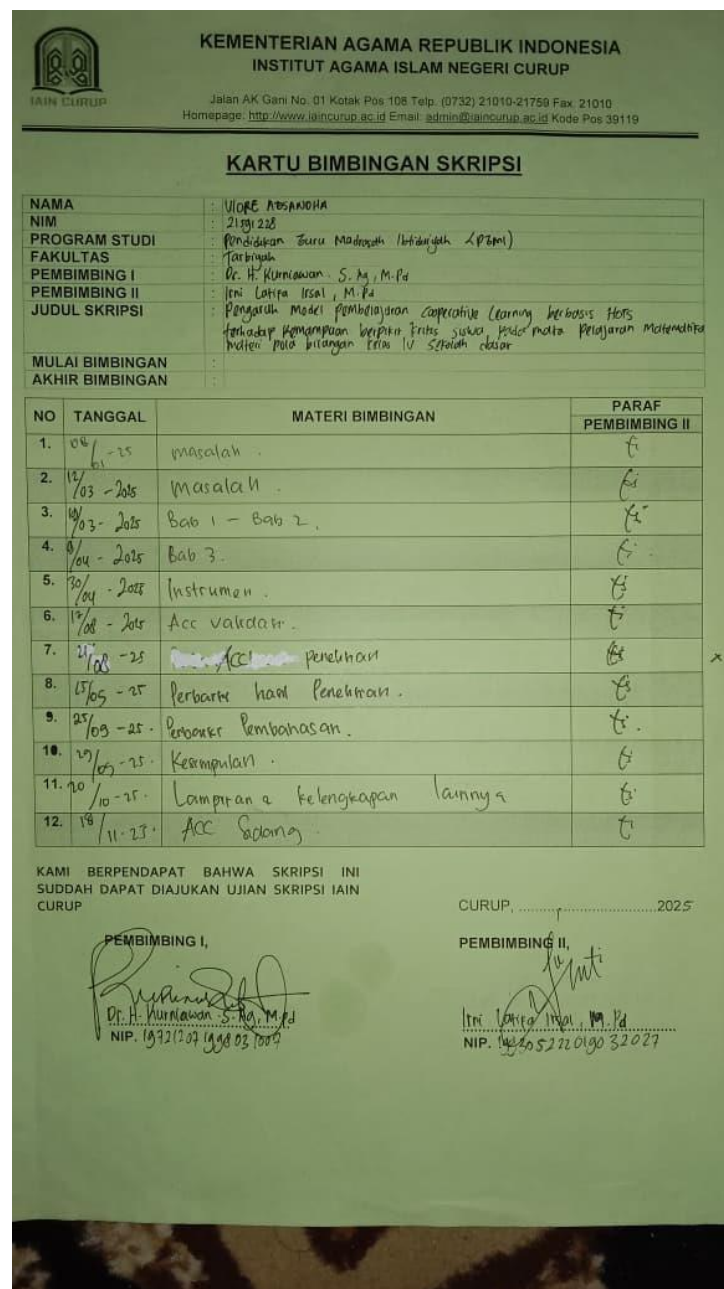 KEMENTERIAN AGAMA REPUBLIK INDONESIA
INSTITUT AGAMA ISLAM NEGERI CURUP
IAIN CURUP
Jalan AK Gani No. 01 Kotak Pos 108 Telp. (0732) 21010-21759 Fax. 21010
Homepage: http://www.iaincurup.ac.id Email: admin@iaincurup.ac.id Kode Pos 39119
KARTU BIMBINGAN SKRIPSI
NAMA : VIORE ADSANDHA
NIM : 21591228
PROGRAM STUDI : Pendidikan Guru Madrasah Ibtidaiyah (PGMI)
FAKULTAS : Tarbiyah
PEMBIMBING I : Dr. H. Kurniawan. S. Ag, M.Pd
PEMBIMBING II : Irni Latifa Irsal, M.Pd
JUDUL SKRIPSI : Pengaruh Model Pembelajaran cooperative Learning berbasis Hots
terhadap kemampuan berpikir kritis siswa pada mata Pelajaran Matematika
materi pola bilangan kelas IV Sekolah dasar
MULAI BIMBINGAN :
AKHIR BIMBINGAN :
NO TANGGAL MATERI BIMBINGAN PARAF
PEMBIMBING II
1. 08/01 - 25 masalah .
2. 12/03 - 2025 Masalah .
3. /03 - 2025 Bab 1 - Bab 2 .
4. /04 - 2025 Bab 3 .
5. 30/04 - 2025 Instrumen .
6. /08 - 2025 Acc validasi .
7. /08 - 25 Acc penelitian x
8. 15/09 - 25 Perbaiki hasil Penelitian .
9. 25/09 - 25 . Perbaiki Pembahasan .
10. 29/09 - 25 . Kesimpulan .
11. 20/10 - 25 . Lampiran & kelengkapan lainnya
12. 18/11 - 23 . ACC Sidang .
KAMI BERPENDAPAT BAHWA SKRIPSI INI
SUDDAH DAPAT DIAJUKAN UJIAN SKRIPSI IAIN
CURUP
CURUP, ..................................2025
PEMBIMBING I, PEMBIMBING II,
Dr. H. Kurniawan. S. Ag, M.Pd Irni Latifa Irsal, M.Pd
NIP. NIP.